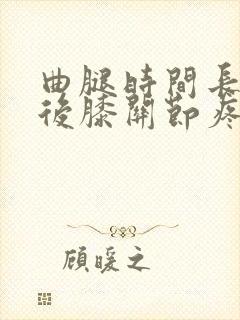 曲腿時間長
後膝關節疼
顾暖之